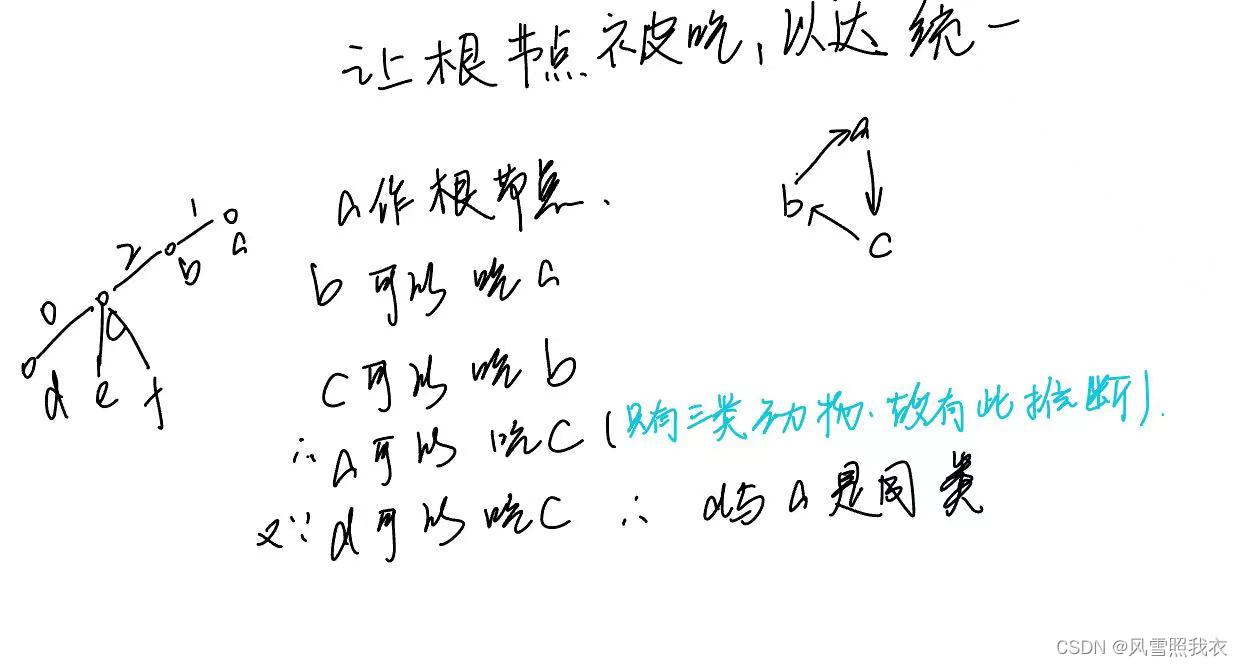 让根节点被吃,以达统一
a作根节点.
b可以吃a
c可以吃b
∴a可以吃c(只有三类动物.故有此推断).
又∵d可以吃c ∴ d与a是同类
1
a
2
b
0
c
d e f
a
b
c
CSDN @风雪照我衣